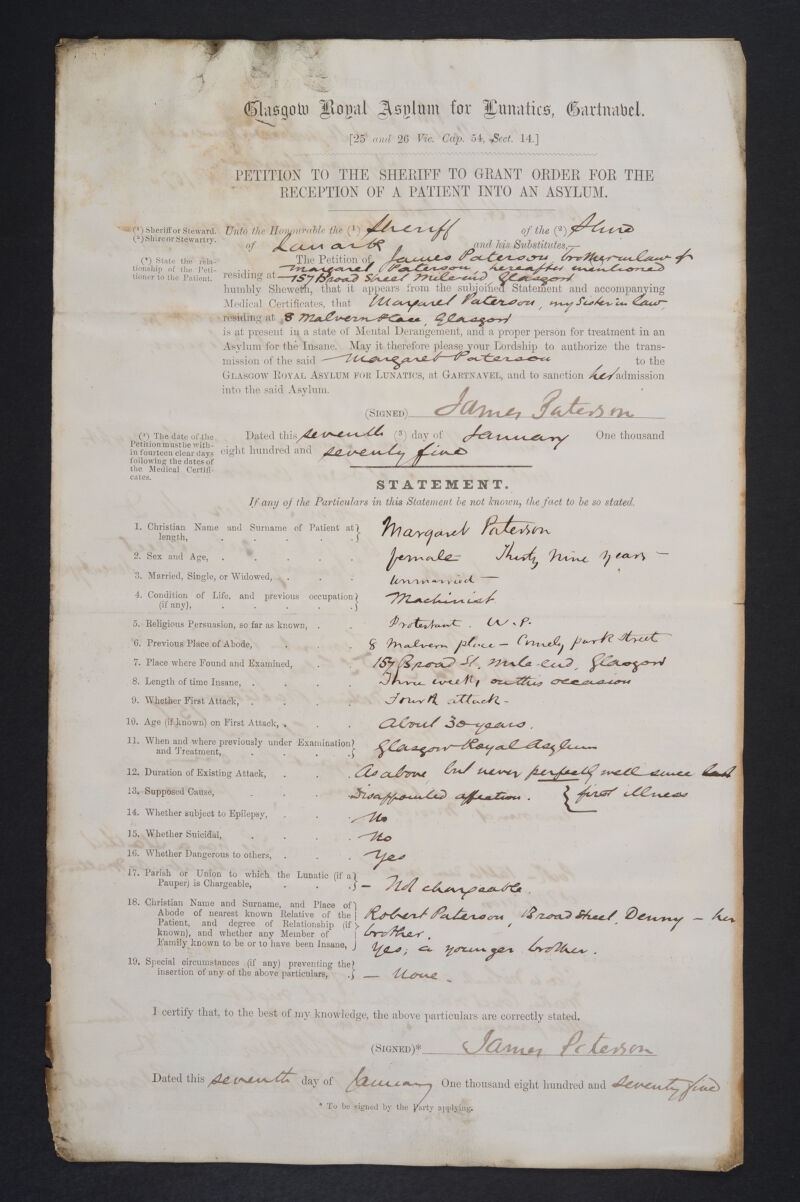 Glasgow Royal Asylum for Lunatics, Gartnabel.
[25 and 26 Vic. Cap. 54, Sect. 14.]
PETITION TO THE SHERIFF TO GRANT ORDER FOR THE
RECEPTION OF A PATIENT INTO AN ASYLUM.
(¹) Sheriff or Steward.
(²) Shire or Stewartry.
Unto the Honourable the (¹) Sheriff of the (²) Shire
of Lanark and his Substitutes,—
(*) State the relationship of the Petitioner to the Patient.
The Petition of James Paterson, brother in law of
Margaret Paterson, hereafter mentioned
residing at 157 Broad Street Mile-end Glasgow
humbly Sheweth, that it appears from the subjoined Statement and accompanying
Medical Certificates, that Margaret Paterson, my Sister in law,
residing at 8 Malvern place, Glasgow
is at present in a state of Mental Derangement, and a proper person for treatment in an
Asylum for the Insane. May it therefore please your Lordship to authorize the trans-
mission of the said Margaret Paterson to the
GLASGOW ROYAL ASYLUM FOR LUNATICS, at GARTNAVEL, and to sanction her admission
into the said Asylum.
(SIGNED) James Paterson
(³) The date of the
Petition must be with-
in fourteen clear days
following the dates of
the Medical Certifi-
cates.
Dated this seventh (³) day of January One thousand
eight hundred and seventy five
STATEMENT.
If any of the Particulars in this Statement be not known, the fact to be so stated.
1. Christian Name and Surname of Patient at length, Margaret Paterson
2. Sex and Age, female Thirty Nine years —
3. Married, Single, or Widowed, unmarried —
4. Condition of Life, and previous occupation (if any), Machinist
5. Religious Persuasion, so far as known, Protestant. U.P.
6. Previous Place of Abode, 8 Malvern place — Comely park Street
7. Place where Found and Examined, 157 Broad St, Mile-end, Glasgow
8. Length of time Insane, Three weeks on this occasion
9. Whether First Attack, Fourth attack -
10. Age (if known) on First Attack, About 30 years.
11. When and where previously under Examination and Treatment, Glasgow Royal Asylum
12. Duration of Existing Attack, As above but never perfectly well since last
first illness
13. Supposed Cause, Disappointed affection.
14. Whether subject to Epilepsy, No
15. Whether Suicidal, No
16. Whether Dangerous to others, Yes
17. Parish or Union to which the Lunatic (if a Pauper) is Chargeable, — Not chargeable.
18. Christian Name and Surname, and Place of
Abode of nearest known Relative of the
Patient, and degree of Relationship (if
known), and whether any Member of
Family known to be or to have been Insane,
Robert Paterson, Broad Street, Denny — her
brother.
Yes, a younger brother.
19. Special circumstances (if any) preventing the
insertion of any of the above particulars, — None.
I certify that, to the best of my knowledge, the above particulars are correctly stated.
(SIGNED)* James Paterson
Dated this seventh day of January One thousand eight hundred and seventy five
* To be signed by the Party applying.